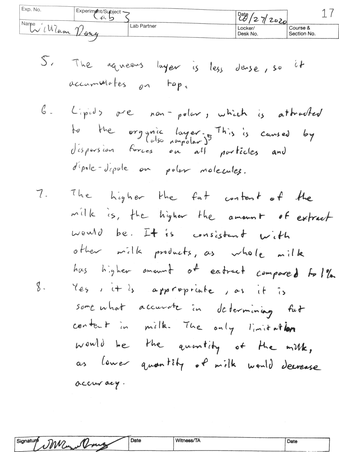 Exp. No. Experiment/Subject Lab 3 Date 10/27/2020 17
Name William Dong Lab Partner Locker/Desk No. Course & Section No.
5. The aqueous layer is less dense, so it
accumulates on top.
6. Lipids are non-polar, which is attracted
to the organic layer. This is caused by
(also nonpolar)
dispersion forces on all particles and
dipole-dipole on polar molecules.
7. The higher the fat content of the
milk is, the higher the amount of extract
would be. It is consistent with
other milk products, as whole milk
has higher amount of extract compared to 1%
8. Yes, it is appropriate, as it is
somewhat accurate in determining fat
content in milk. The only limitation
would be the quantity of the milk,
as lower quantity of milk would decrease
accuracy.
Signature Date Witness/TA Date